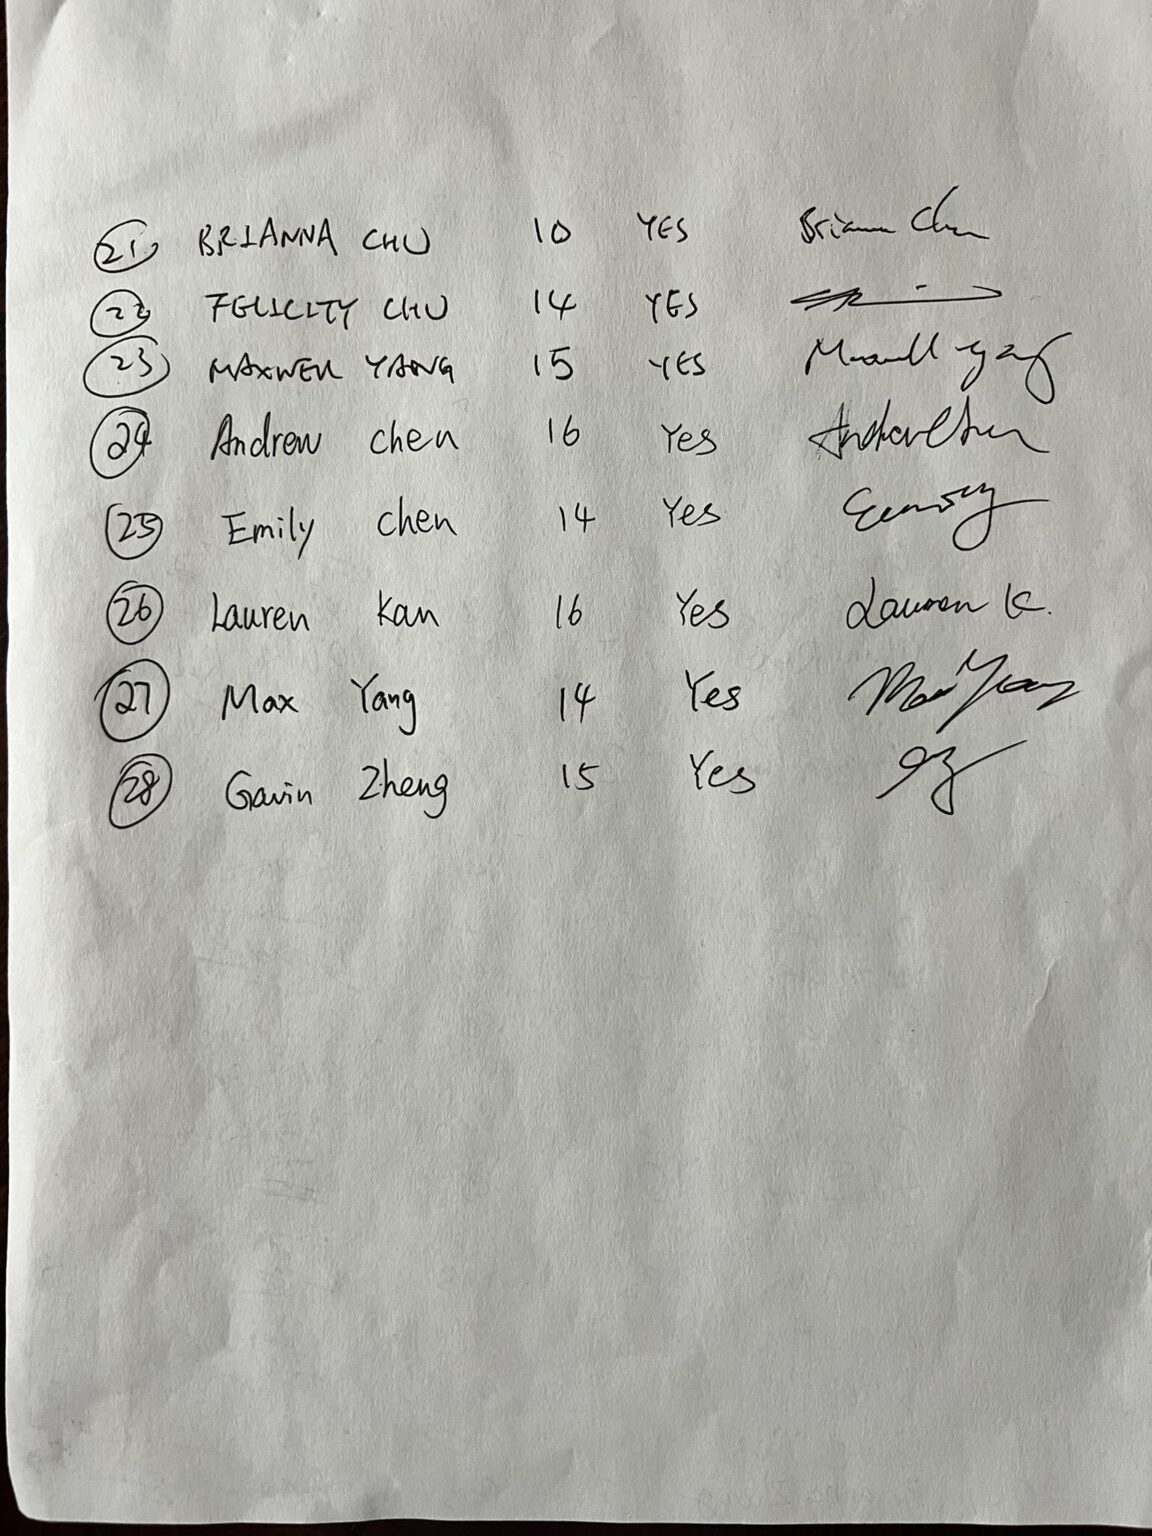 21 BRIANNA CHU 10 YES Brianna Chu
22 FELICITY CHU 14 YES
23 MAXWELL YANG 15 YES Maxwell Yang
24 Andrew Chen 16 Yes Andrew Chen
25 Emily Chen 14 Yes
26 Lauren Kan 16 Yes Lauren K.
27 Max Yang 14 Yes Max Yang
28 Gavin Zheng 15 Yes